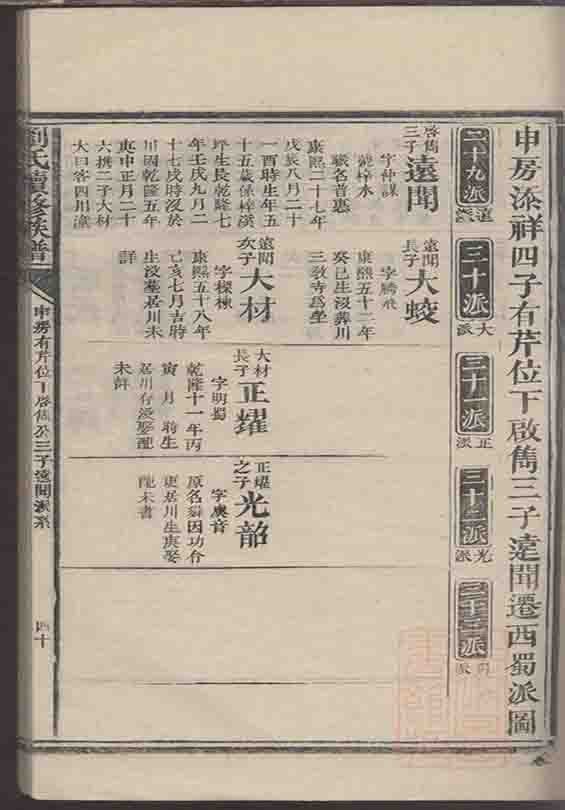 申房添祥四子有芹位下啟雋三子遠聞遷西蜀派圖
二十九派
遠派
三十派
大派
三十一派
正派
三十二派
光派
三十三派
啓雋
三子
遠聞
字仲謀
號梓水
職名普惠
康熙二十七年
戊辰八月二十
一酉時生年五
十五歲保梓潢
坪生長乾隆七
年壬戌九月二
十七戌時沒於
川國乾隆五年
庚申正月二十
六携二子大材
大曰客四川潼
遠聞
長子
大蛟
字騰飛
康熙五十二年
癸巳生沒葬川
三教寺爲塋
遠聞
次子
大材
字樑棟
康熙五十八年
己亥七月吉時
生沒墓居川未
詳
大材
長子
正耀
字明蜀
乾隆十一年丙
寅 月 時生
居川存沒娶配
未詳
正耀
之子
光韶
字奧音
原名舜因功令
更居川生庚娶
配未書
劉氏續修族譜
申房有芹位下啓雋公三子遠聞派系
四十